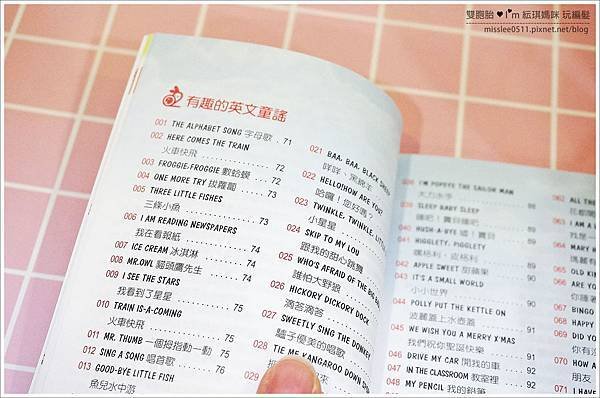 雙胞胎 ♥ I'm 紜琪媽咪 玩編髮
misslee0511.pixnet.net/blog
有趣的英文童謠
001 THE ALPHABET SONG 字母歌 . 71
002 HERE COMES THE TRAIN
火車快飛 ........ 72
003 FROGGIE, FROGGIE 數蛤蟆 .... 72
004 ONE MORE TRY 拔蘿蔔 .... 73
005 THREE LITTLE FISHES
三條小魚 ........ 73
006 I AM READING NEWSPAPERS
我在看報紙 ........ 74
007 ICE CREAM 冰淇淋 .... 74
008 MR.OWL 貓頭鷹先生 .... 74
009 I SEE THE STARS
我看到了星星 ........ 75
010 TRAIN IS-A-COMING
火車快飛 ........ 75
011 MR. THUMB 一個拇指動一動 75
012 SING A SONG 唱首歌 .... 76
013 GOOD-BYE LITTLE FISH
魚兒水中游
021 BAA, BAA, BLACK
咩咩，黑綿羊
022 HELLO!HOW ARE
哈囉！您好嗎？
023 TWINKLE, TWINKLE,
小星星
024 SKIP TO MY LOU
跟我的甜心跳舞
025 WHO'S AFRAID OF THE BIG
誰怕大野狼
026 HICKORY DICKORY DOCK
滴答滴答
027 SWEETLY SING THE DONKEY
驢子優美的唱歌
028 TIE ME KANGAROO DOWN
038 I'M POPEYE THE SAILOR MAN
大力水手 ........ 88
039 SLEEP BABY SLEEP
睡吧！寶貝睡吧 .... 88
040 HUSH-A-BYE 噓！寶貝 .... 89
041 HIGGLETY, PIGGLETY
嘰格利，皮格利 .... 89
042 APPLE SWEET 甜蘋果 .... 90
043 IT'S A SMALL WORLD
小小世界 ........ 90
044 POLLY PUT THE KETTLE ON
波麗蓋上水壺蓋 .... 91
045 WE WISH YOU A MERRY X'MAS
我們祝你聖誕快樂 .... 91
046 DRIVE MY CAR 開我的車 .... 92
047 IN THE CLASSROOM 教室裡 .... 92
048 MY PENCIL 我的鉛筆
062 ALL THE
063
064 MARY
065
066
067 BINGO
068 HAPPY
069 DID YO
070 HOW
朋友
071 I HAVE